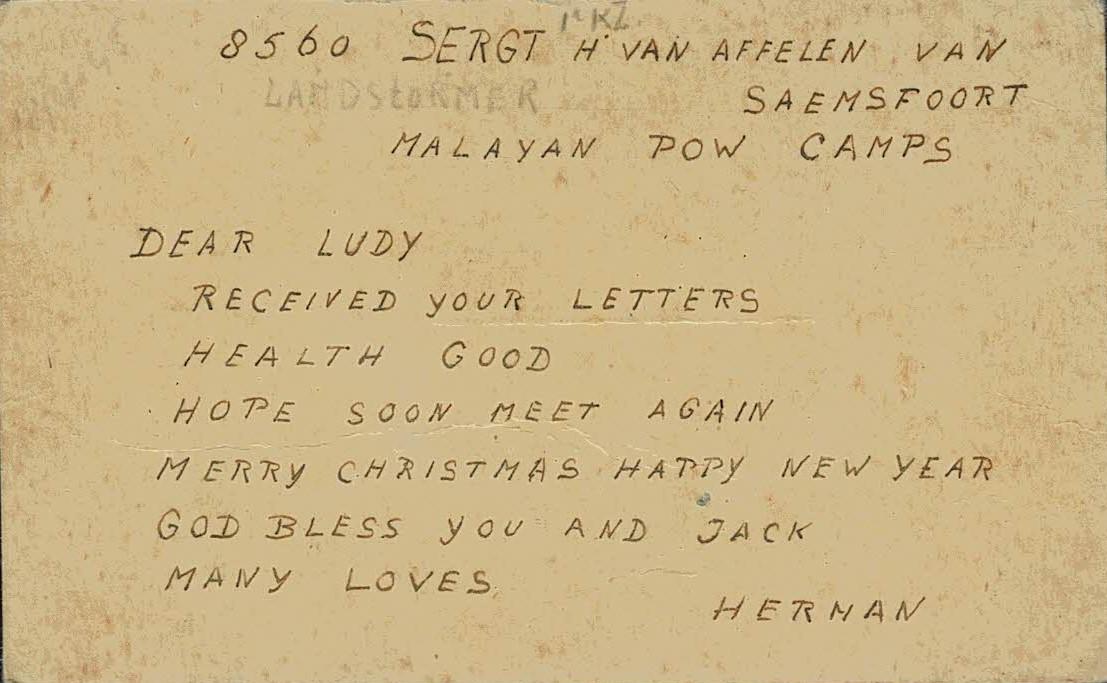 8560 SERGT H VAN AFFELEN VAN
LANDSTORMER SAEMSFOORT
MALAYAN POW CAMPS
DEAR LUDY
RECEIVED YOUR LETTERS
HEALTH GOOD
HOPE SOON MEET AGAIN
MERRY CHRISTMAS HAPPY NEW YEAR
GOD BLESS YOU AND JACK
MANY LOVES
HERMAN